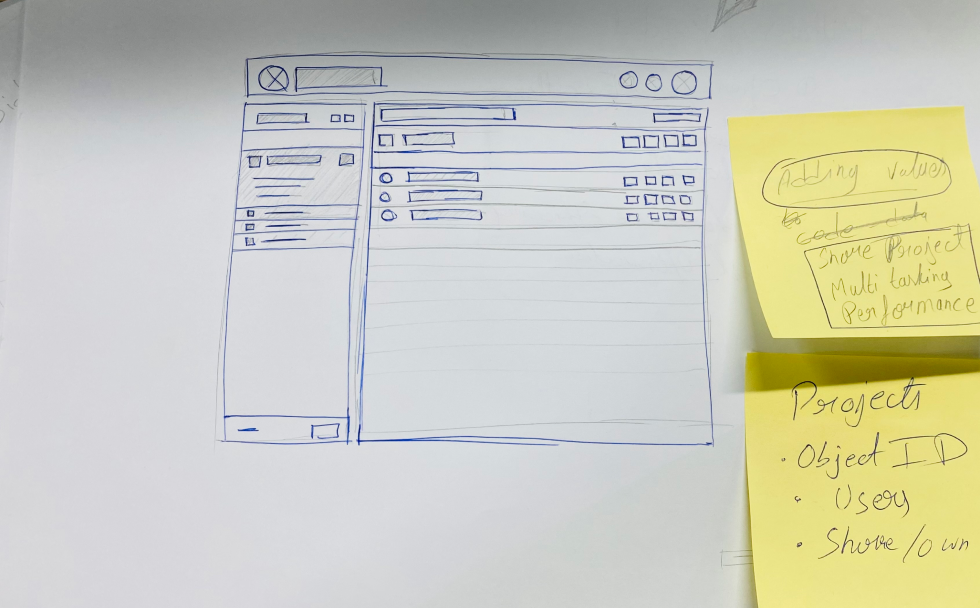 Adding values
code data
Share Project
Multi tasking
Performance
Projects
· Object ID
· Users
· Share/own